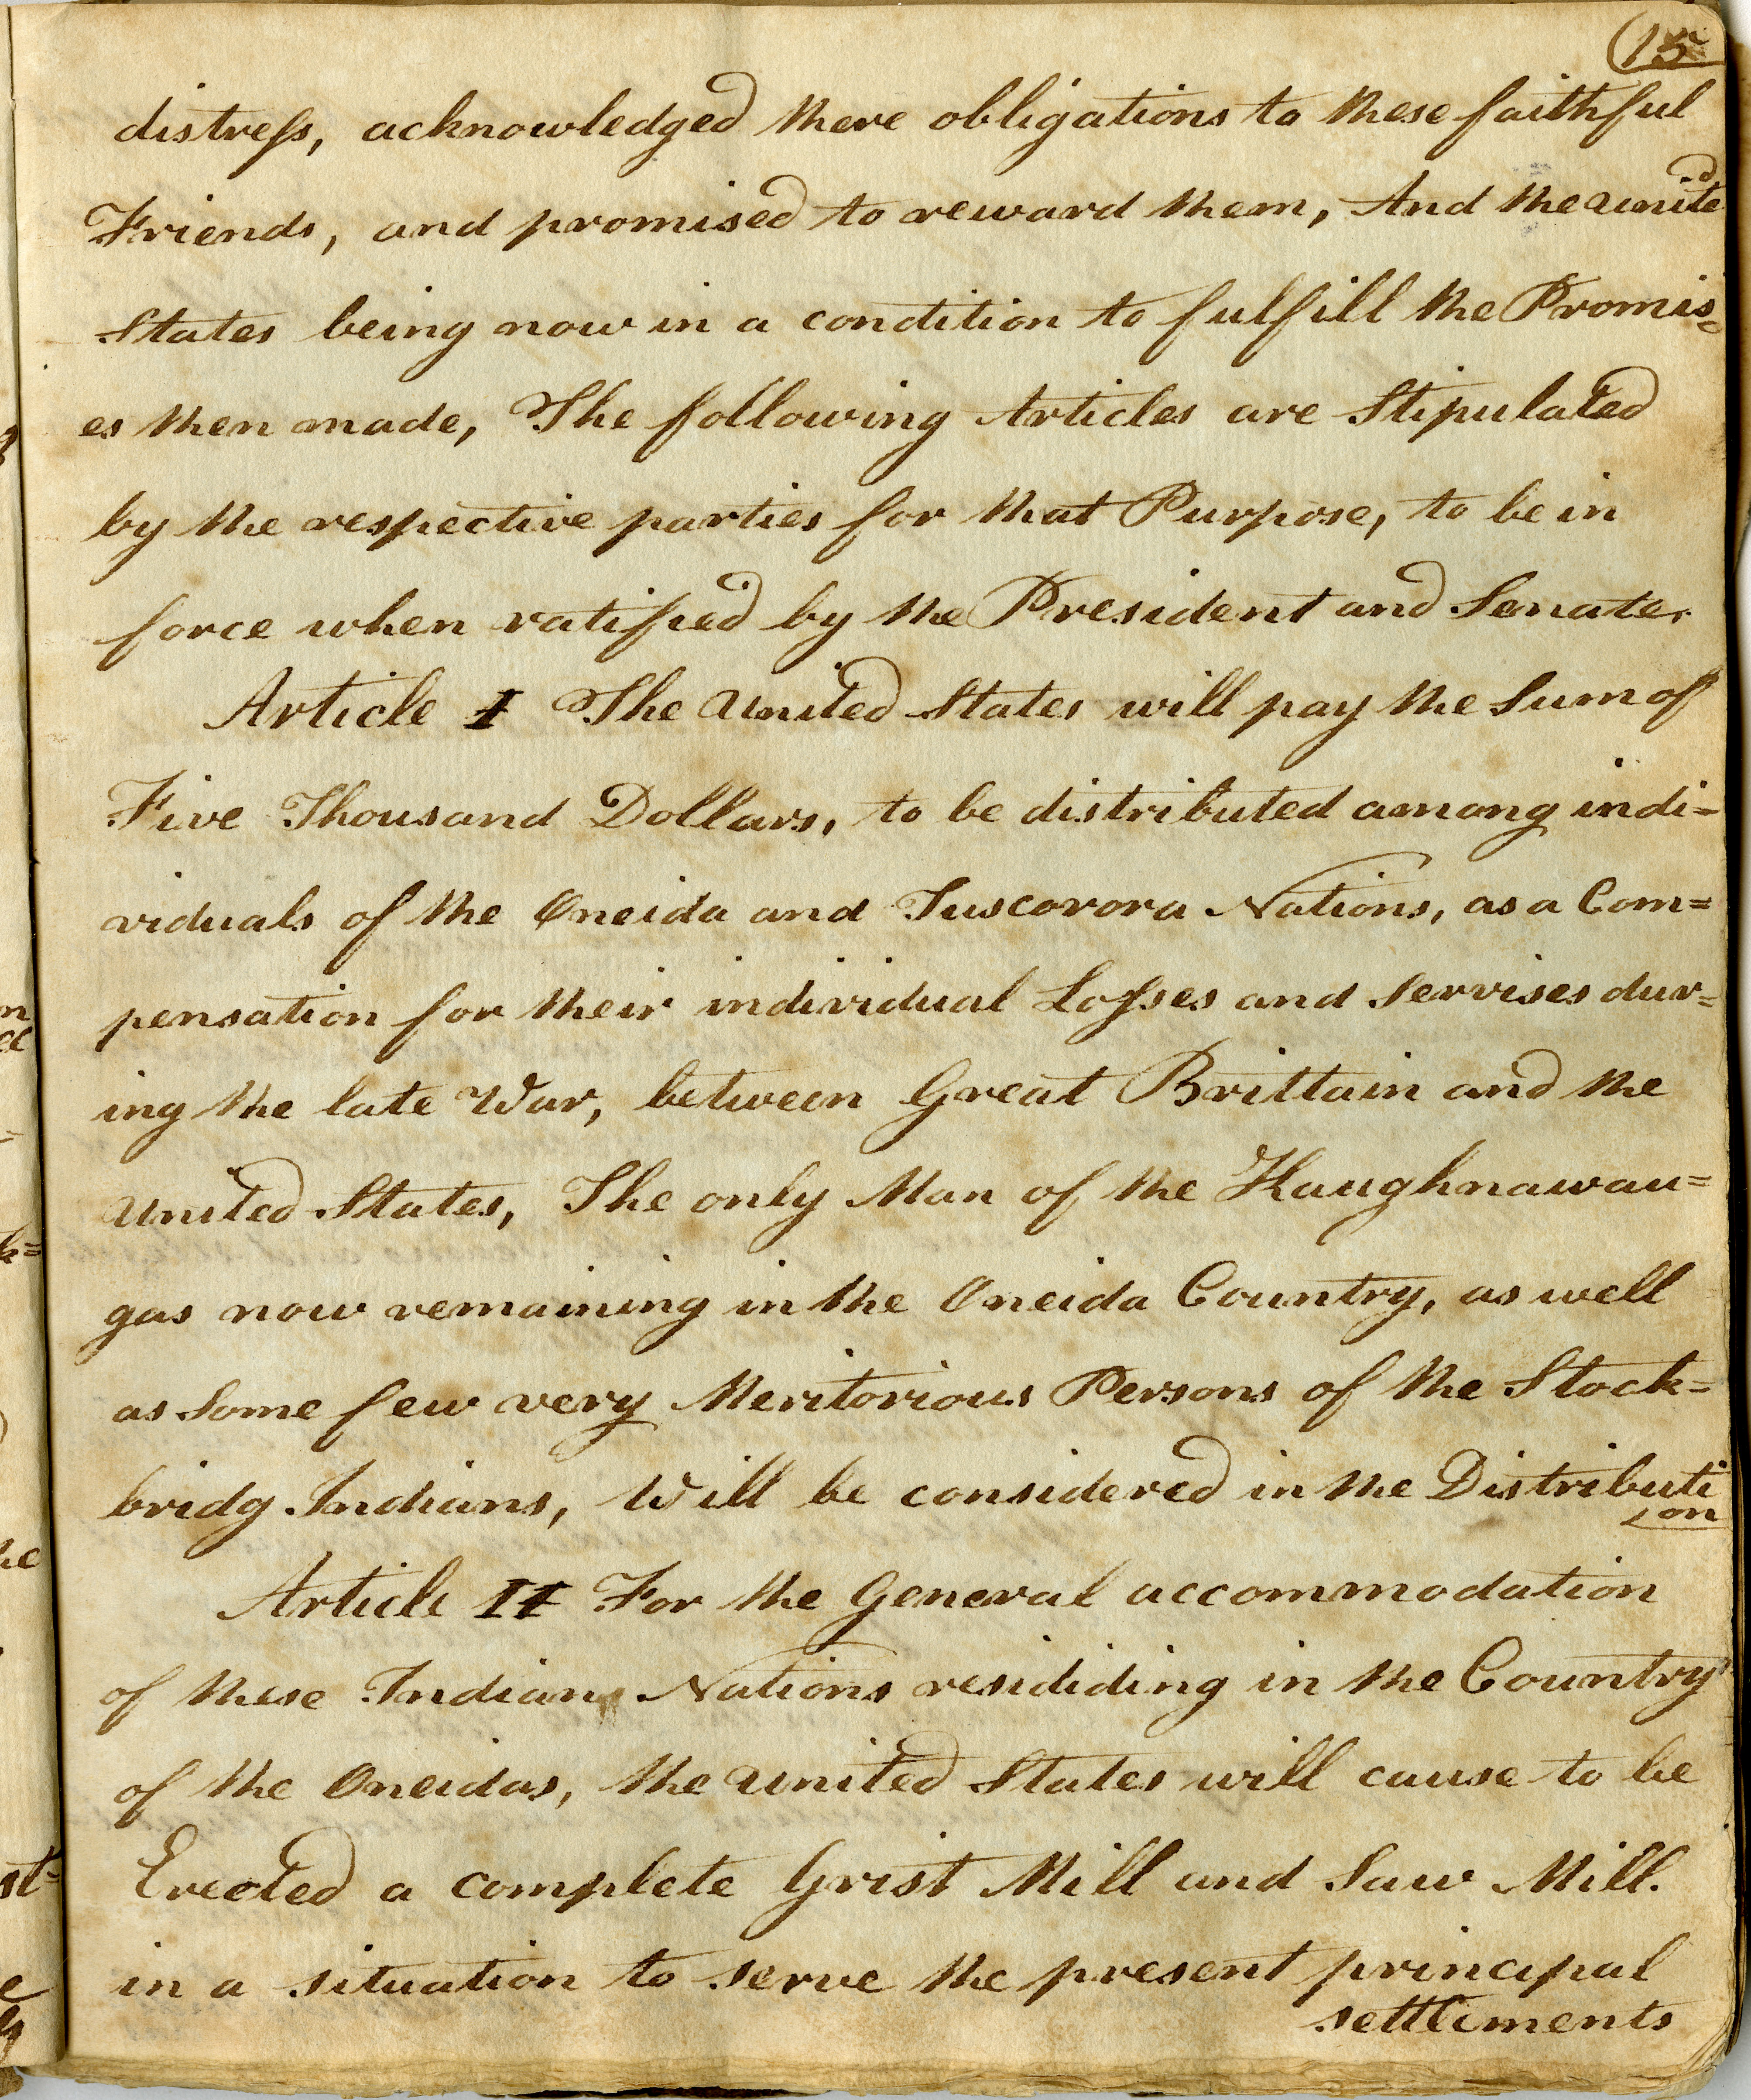 (15
distress, acknowledged there obligations to these faithful
Friends, and promised to reward them, And the United
States being now in a condition to fulfill the Promis=
es then made, The following Articles are Stipulated
by the respective parties for that Purpose, to be in
force when ratified by the President and Senate.
Article I The United States will pay the Sum of
Five Thousand Dollars, to be distributed among indi=
viduals of the Oneida and Tuscorora Nations, as a Com=
pensation for their individual Losses and Servises dur=
ing the late War, between Great Brittain and the
United States, The only Man of the Kaughnawau=
gas now remaining in the Oneida Country, as well
as Some few very Meritorious Persons of the Stock=
bridg Indians, Will be considered in the Distributi
on
Article II For the General accommodation
of these Indian Nations resididing in the Country
of the Oneidas, the United States will cause to be
Erected a complete Grist Mill and Saw Mill.
in a situation to serve the present principal
settlements